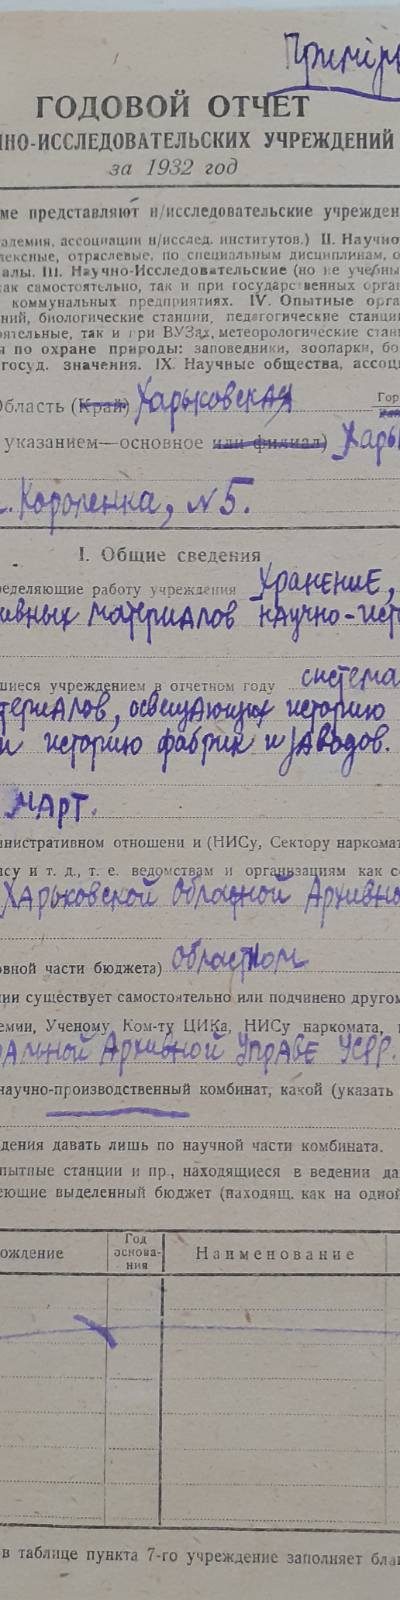 Примір
ГОДОВОЙ ОТЧЕТ
НО-ИССЛЕДОВАТЕЛЬСКИХ УЧРЕЖДЕНИЙ
за 1932 год
ме представляют н/исследовательские учрежден
адемия, ассоциации н/исслед. институтов.) II. Научно
лексные, отраслевые, по специальным дисциплинам, о
алы. III. Научно-Исследовательские (но не учебны
как самостоятельно, так и при государственных орган
коммунальных предприятиях. IV. Опытные орга
ний, биологические станции, педагогические станции
оятельные, так и при ВУЗах, метеорологические стан
я по охране природы: заповедники, зоопарки, бо
госуд. значения. IX. Научные общества, ассоц
Область (Край) Харьковская Гор
указанием—основное или филиал) Харь
. Короленка, № 5.
I. Общие сведения
ределяющие работу учреждения Хранение,
ивных материалов научно-ист
шиеся учреждением в отчетном году система
териалов, освещающих историю
и историю фабрик и заводов.
март.
министративном отношени и (НИСу, Сектору наркомат
ису и т. д., т. е. ведомствам и организациям как со
Харьковской Областной Архивно
овной части бюджета) областном
ции существует самостоятельно или подчинено другом
емии, Ученому Ком-ту ЦИКа, НИСу наркомата,
альной Архивной Управе УСРР.
научно-производственный комбинат, какой (указать
дения давать лишь по научной части комбината.
опытные станции и пр., находящиеся в ведении да
еющие выделенный бюджет (находящ. как на одной
ождение Год основа- ния Наименование
в таблице пункта 7-го учреждение заполняет блан